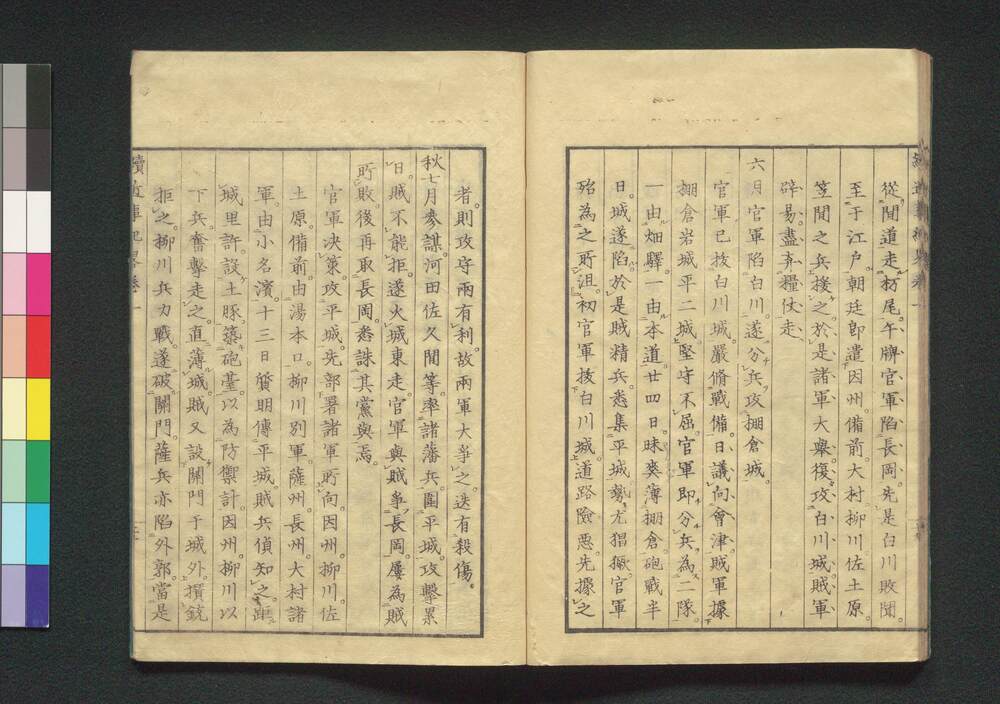 從間道走村尾。午牌官軍陷長岡。先是白川敗聞。
至于江戶。朝廷卽遣因州。備前。大村。柳川。佐土原。
笠間之兵援之。於是諸軍大擧。復攻白川城。賊軍
辟易。盡弃糧仗走。
六月官軍陷白川。遂分兵攻棚倉城。
官軍已拔白川城。嚴脩戰備。日議向會津。賊軍據
棚倉岩城平二城。堅守不屈。官軍卽分兵爲二隊。
一由畑驛。一由本道。廿四日昧爽薄棚倉。砲戰半
日。城遂陷。於是賊精兵。悉集平城。勢尤猖獗。官軍
殆為之所沮。初官軍拔白川城。道路險惡。先據之
者。則攻守兩有利。故兩軍大爭之。迭有殺傷。
秋七月參謀。河田佐久間等。率諸藩兵。圍平城。攻擊累
日。賊不能拒。遂火城東走。官軍與賊爭長岡。屢為賊
所敗。後再取長岡。悉誅其黨與焉。
官軍決策。攻平城。先部署諸軍所向。因州。柳川。佐
土原。備前。由湯本口。柳川別軍。薩州。長州。大村諸
軍。由小名濱。十三日質明傳平城。賊兵偵知之。距
城里許。設土豚。築砲臺。以為防禦計。因州。柳川以
下兵。奮擊走之。直薄城。賊又設關門于城外。攢銃
拒之。柳川兵力戰。遂破關門。薩兵亦陷外郭。當是